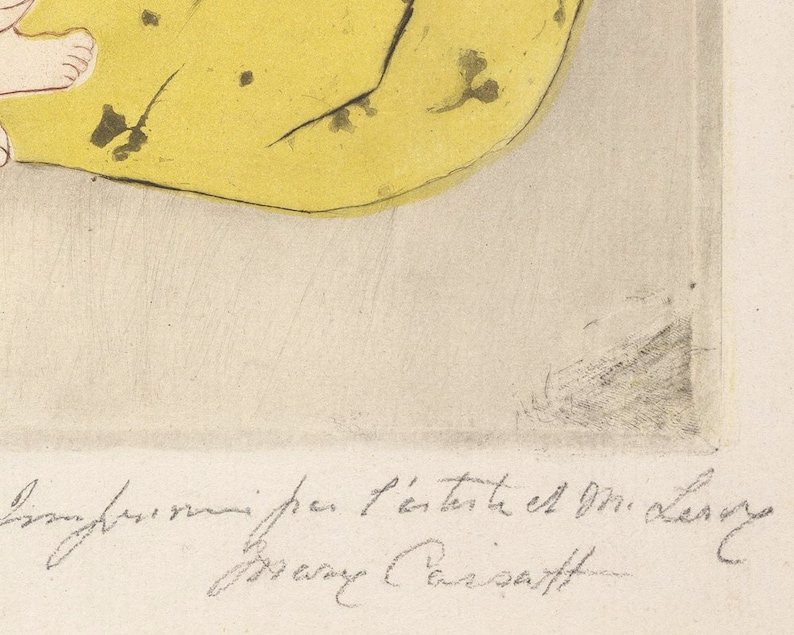 Imprimée par l'artiste et M. Leroy
Mary Cassatt